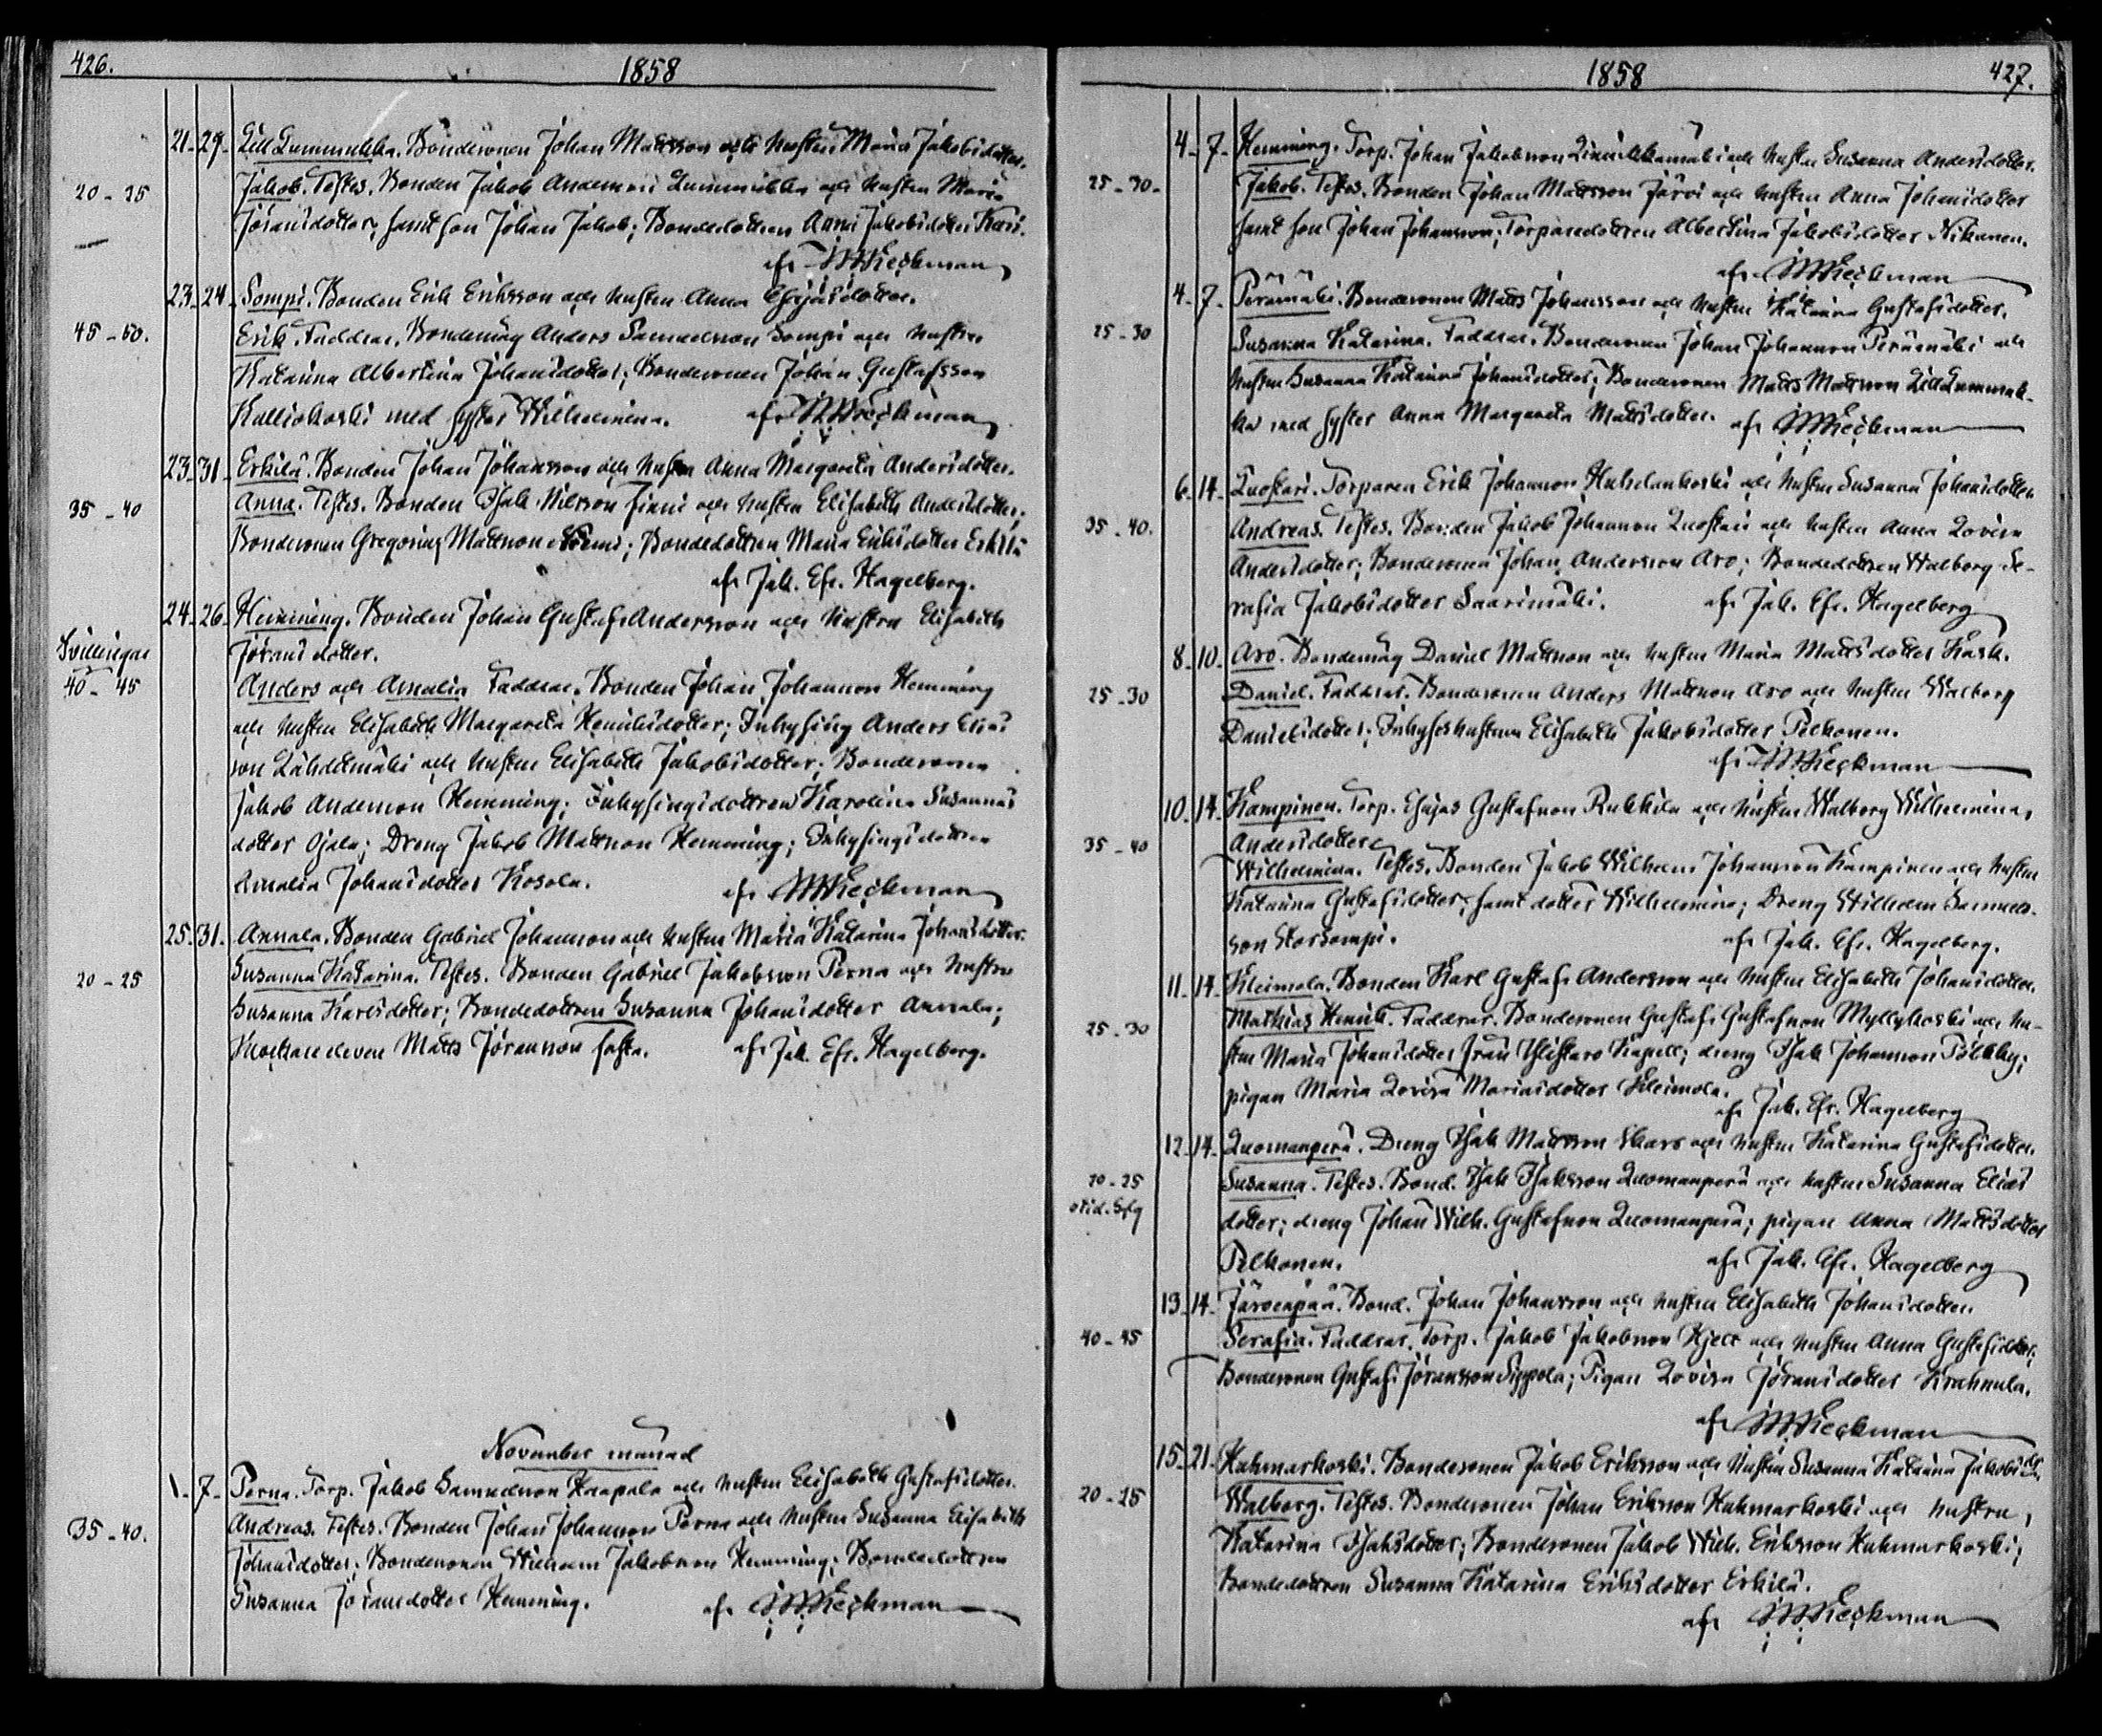 426.
1858
21. 29. Lill Lummukka. Bondesonen Johan Mattsson och Hustru Maria Jakobsdotter.
20 - 25 Jakob. Testes. Bonden Jakob Andersson Lummukka och Hustru Maria
Jöransdotter, samt son Johan Jakob; Bondedottren Anna Jakobsdotter
af
23. 24. Sompi. Bonden Erik Eriksson och Hustru Anna Esaiasdotter.
45 - 50. Erik. Faddrar. Bondemåg Anders Samuelsson Sompi och Hustru
Katarina Albertina Johansdotter; Bondesonen Johan Gustafsson
Kalliokoski med syster Wilhelmina. af
23. 31. Erkilä. Bonden Johan Johansson och Hustru Anna Margareta Andersdotter.
35 - 40 Anna. Testes. Bonden Isak Nilsson Finni och Hustru Elisabeth Andersdotter;
Bondesonen Gregorius Mattsson; Bondedottren Maria Eriksdotter Erkilä
af Jak. Efr. Hagelberg.
24. 26. Hemming. Bonden Johan Gustaf Andersson och Hustru Elisabeth
Jöransdotter.
Tvillingar
40 - 45 Anders och Amalia Faddrar. Bonden Johan Johansson Hemming
och Hustru Elisabeth Margareta Henriksdotter; Inhysing Anders Elias
son Lähdesmäki och Hustru Elisabeth Jakobsdotter; Bondesonen
Jakob Andersson Hemming; Inhysingsdottren Karolina Susannas
dotter Ojala; Dreng Jakob Mattsson Hemming; Inhysingsdottren
Amalia Johansdotter Kosola. af
25. 31. Annala. Bonden Gabriel Johansson och Hustru Maria Katarina Johansdotter.
20 - 25 Susanna Katarina. Testes. Bonden Gabriel Jakobsson Perna och Hustru
Susanna Karlsdotter; Bondedottren Susanna Johansdotter Annala;
Matts Jöransson af Jak. Efr. Hagelberg.
November månad
1. 7. Perna. Torp. Jakob Samuelsson Haapala och Hustru Elisabeth Gustafsdotter.
35 - 40. Andreas. Testes. Bonden Johan Johansson Perna och Hustru Susanna Elisabeth
Johansdotter; Bondesonen Wilhelm Jakobsson Hemming; Bondedottren
Susanna Jöransdotter Hemming. af
1858
427.
4. 7. Hemming. Torp. Johan Jakobsson och Hustru Susanna Andersdotter.
25 - 30. Jakob. Testes. Bonden Johan Mattsson Järvi och Hustru Anna Johansdotter
samt son Johan Johansson; Torparedottren Albertina Jakobsdotter Nikanen.
af
4. 7. Perämäki. Bondesonen Matts Johansson och Hustru Katarina Gustafsdotter.
25 - 30 Susanna Katarina. Faddrar. Bondesonen Johan Johansson Perämäki och
Hustru Susanna Katarina Johansdotter; Bondesonen Matts Mattsson Lill Lummuk-
ka med syster Anna Margareta Mattsdotter. af
6. 14. Luostari. Torparen Erik Johansson Huhdankoski och Hustru Susanna Johansdotter
35 - 40. Andreas. Testes. Bonden Jakob Johansson Luostari och Hustru Anna Lovisa
Andersdotter; Bondesonen Johan Andersson Aro; Bondedottren Walborg Se-
rafia Jakobsdotter Saarimäki. af Jak. Efr. Hagelberg
8. 10. Aro. Bondemåg Daniel Mattsson och Hustru Maria Mattsdotter Kask.
25 - 30 Daniel. Faddrar. Bondesonen Anders Mattsson Aro och Hustru Walborg
Danielsdotter; Inhyseshustrun Elisabeth Jakobsdotter Pelkonen.
af
10. 14. Kampinen. Torp. Esajas Gustafsson Rukkila och Hustru Walborg Wilhelmina
35 - 40 Andersdotter
Wilhelmina. Testes. Bonden Jakob Wilhelm Johansson Kampinen och Hustru
Katarina Gustafsdotter, samt dotter Wilhelmina; Dreng Wilhelm Samuels-
son Storsompi. af Jak. Efr. Hagelberg.
11. 14. Kleimola. Bonden Karl Gustaf Andersson och Hustru Elisabeth Johansdotter.
25 - 30 Mathias Henrik. Faddrar. Bondesonen Gustaf Gustafsson Myllykoski och Hu-
stru Maria Johansdotter från Ylistaro Kapell; dreng Isak Johansson Pölkky;
pigan Maria Lovisa Mariasdotter Kleimola.
af Jak. Efr. Hagelberg
12. 14. Luomanperä. Dreng Isak Mattsson och Hustru Katarina Gustafsdotter.
20 - 25 Susanna. Testes. Bond. Isak Isaksson Luomanperä och Hustru Susanna Elias
dotter; dreng Johan Wilh. Gustafsson Luomanperä; pigan Anna Mattsdotter
Pelkonen. af Jak. Efr. Hagelberg
13. 14. Järvenpää. Bond. Johan Johansson och Hustru Elisabeth Johansdotter.
40 - 45 Serafia. Faddrar. Torp. Jakob Jakobsson Hjelt och Hustru Anna Gustafsdotter;
Bondesonen Gustaf Jöransson Sippola; Pigan Lovisa Jöransdotter
af
15. 21. Hahmarkoski. Bondesonen Jakob Eriksson och Hustru Susanna Katarina Jakobsdr.
20 - 25 Walborg. Testes. Bondesonen Johan Eriksson Hahmarkoski och Hustru
Katarina Isaksdotter; Bondesonen Jakob Wilh. Eriksson Hahmarkoski;
Bondedottren Susanna Katarina Eriksdotter Erkilä.
af